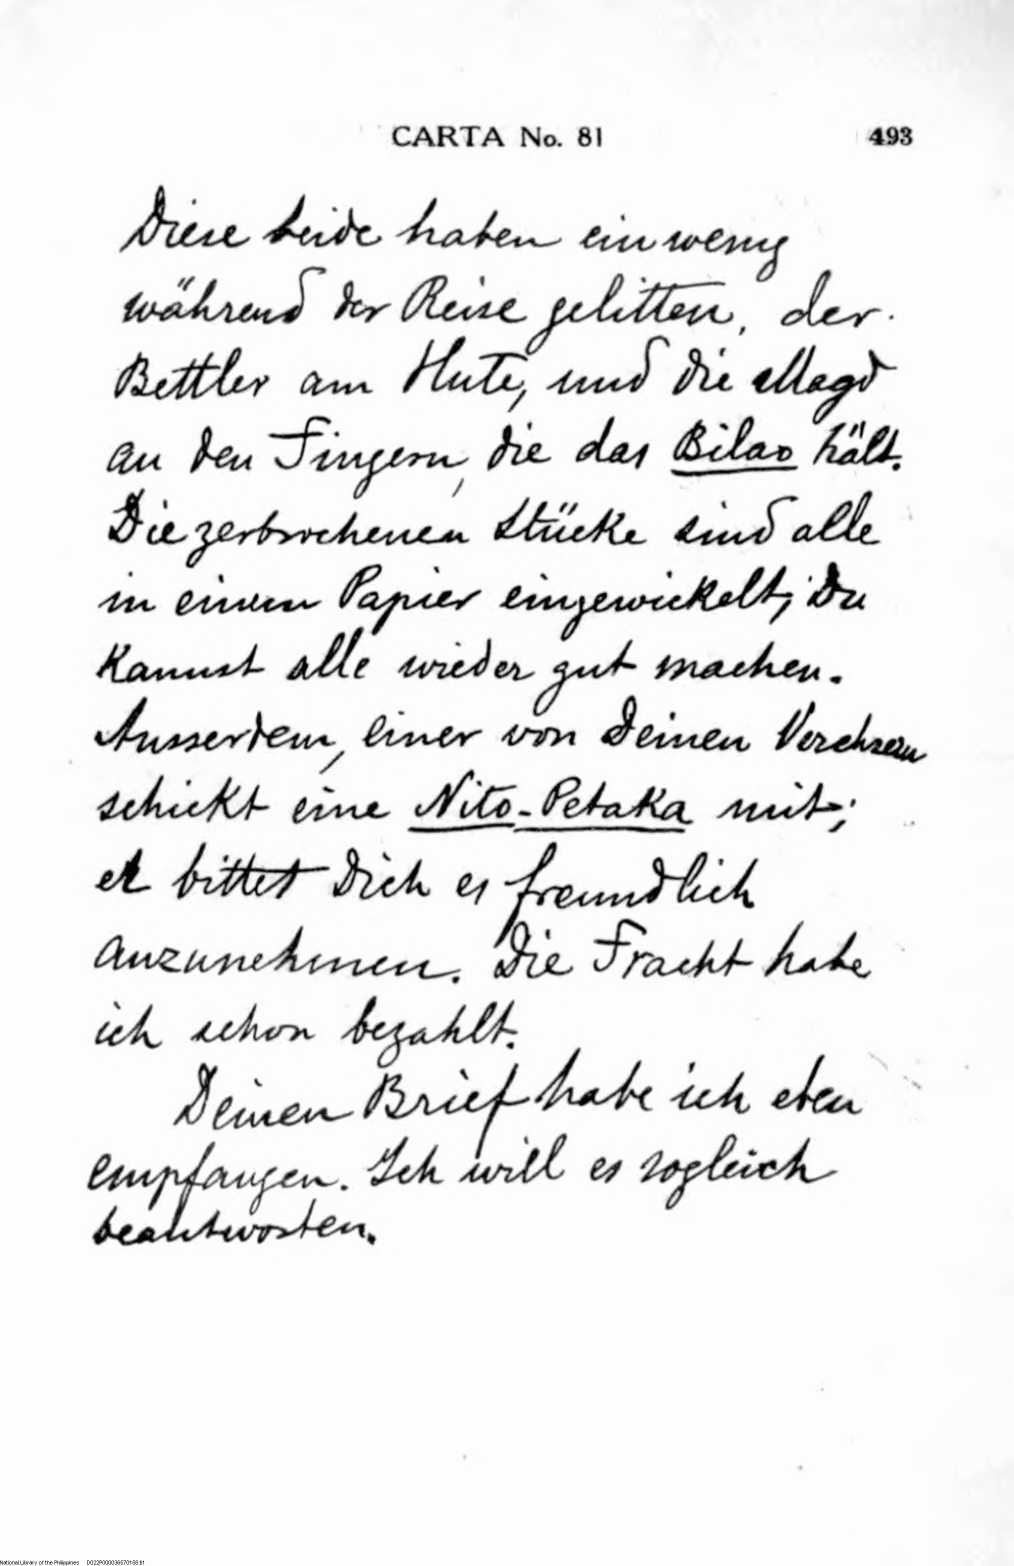 CARTA No. 81 493
Diese beide haben ein wenig
während der Reise gelitten, der
Bettler am Hute, und die Magd
an den Fingern, die das Bilao hält.
Die zerbrochenen Stücke sind alle
in einem Papier eingewickelt; Du
kannst alle wieder gut machen.
Ausserdem, einer von Deinen Verehrern
schickt eine Nito-Petaka mit;
er bittet Dich es freundlich
anzunehmen. Die Fracht habe
ich schon bezahlt.
Deinen Brief habe ich eben
empfangen. Ich will es sogleich
beantworten.
National Library of the Philippines